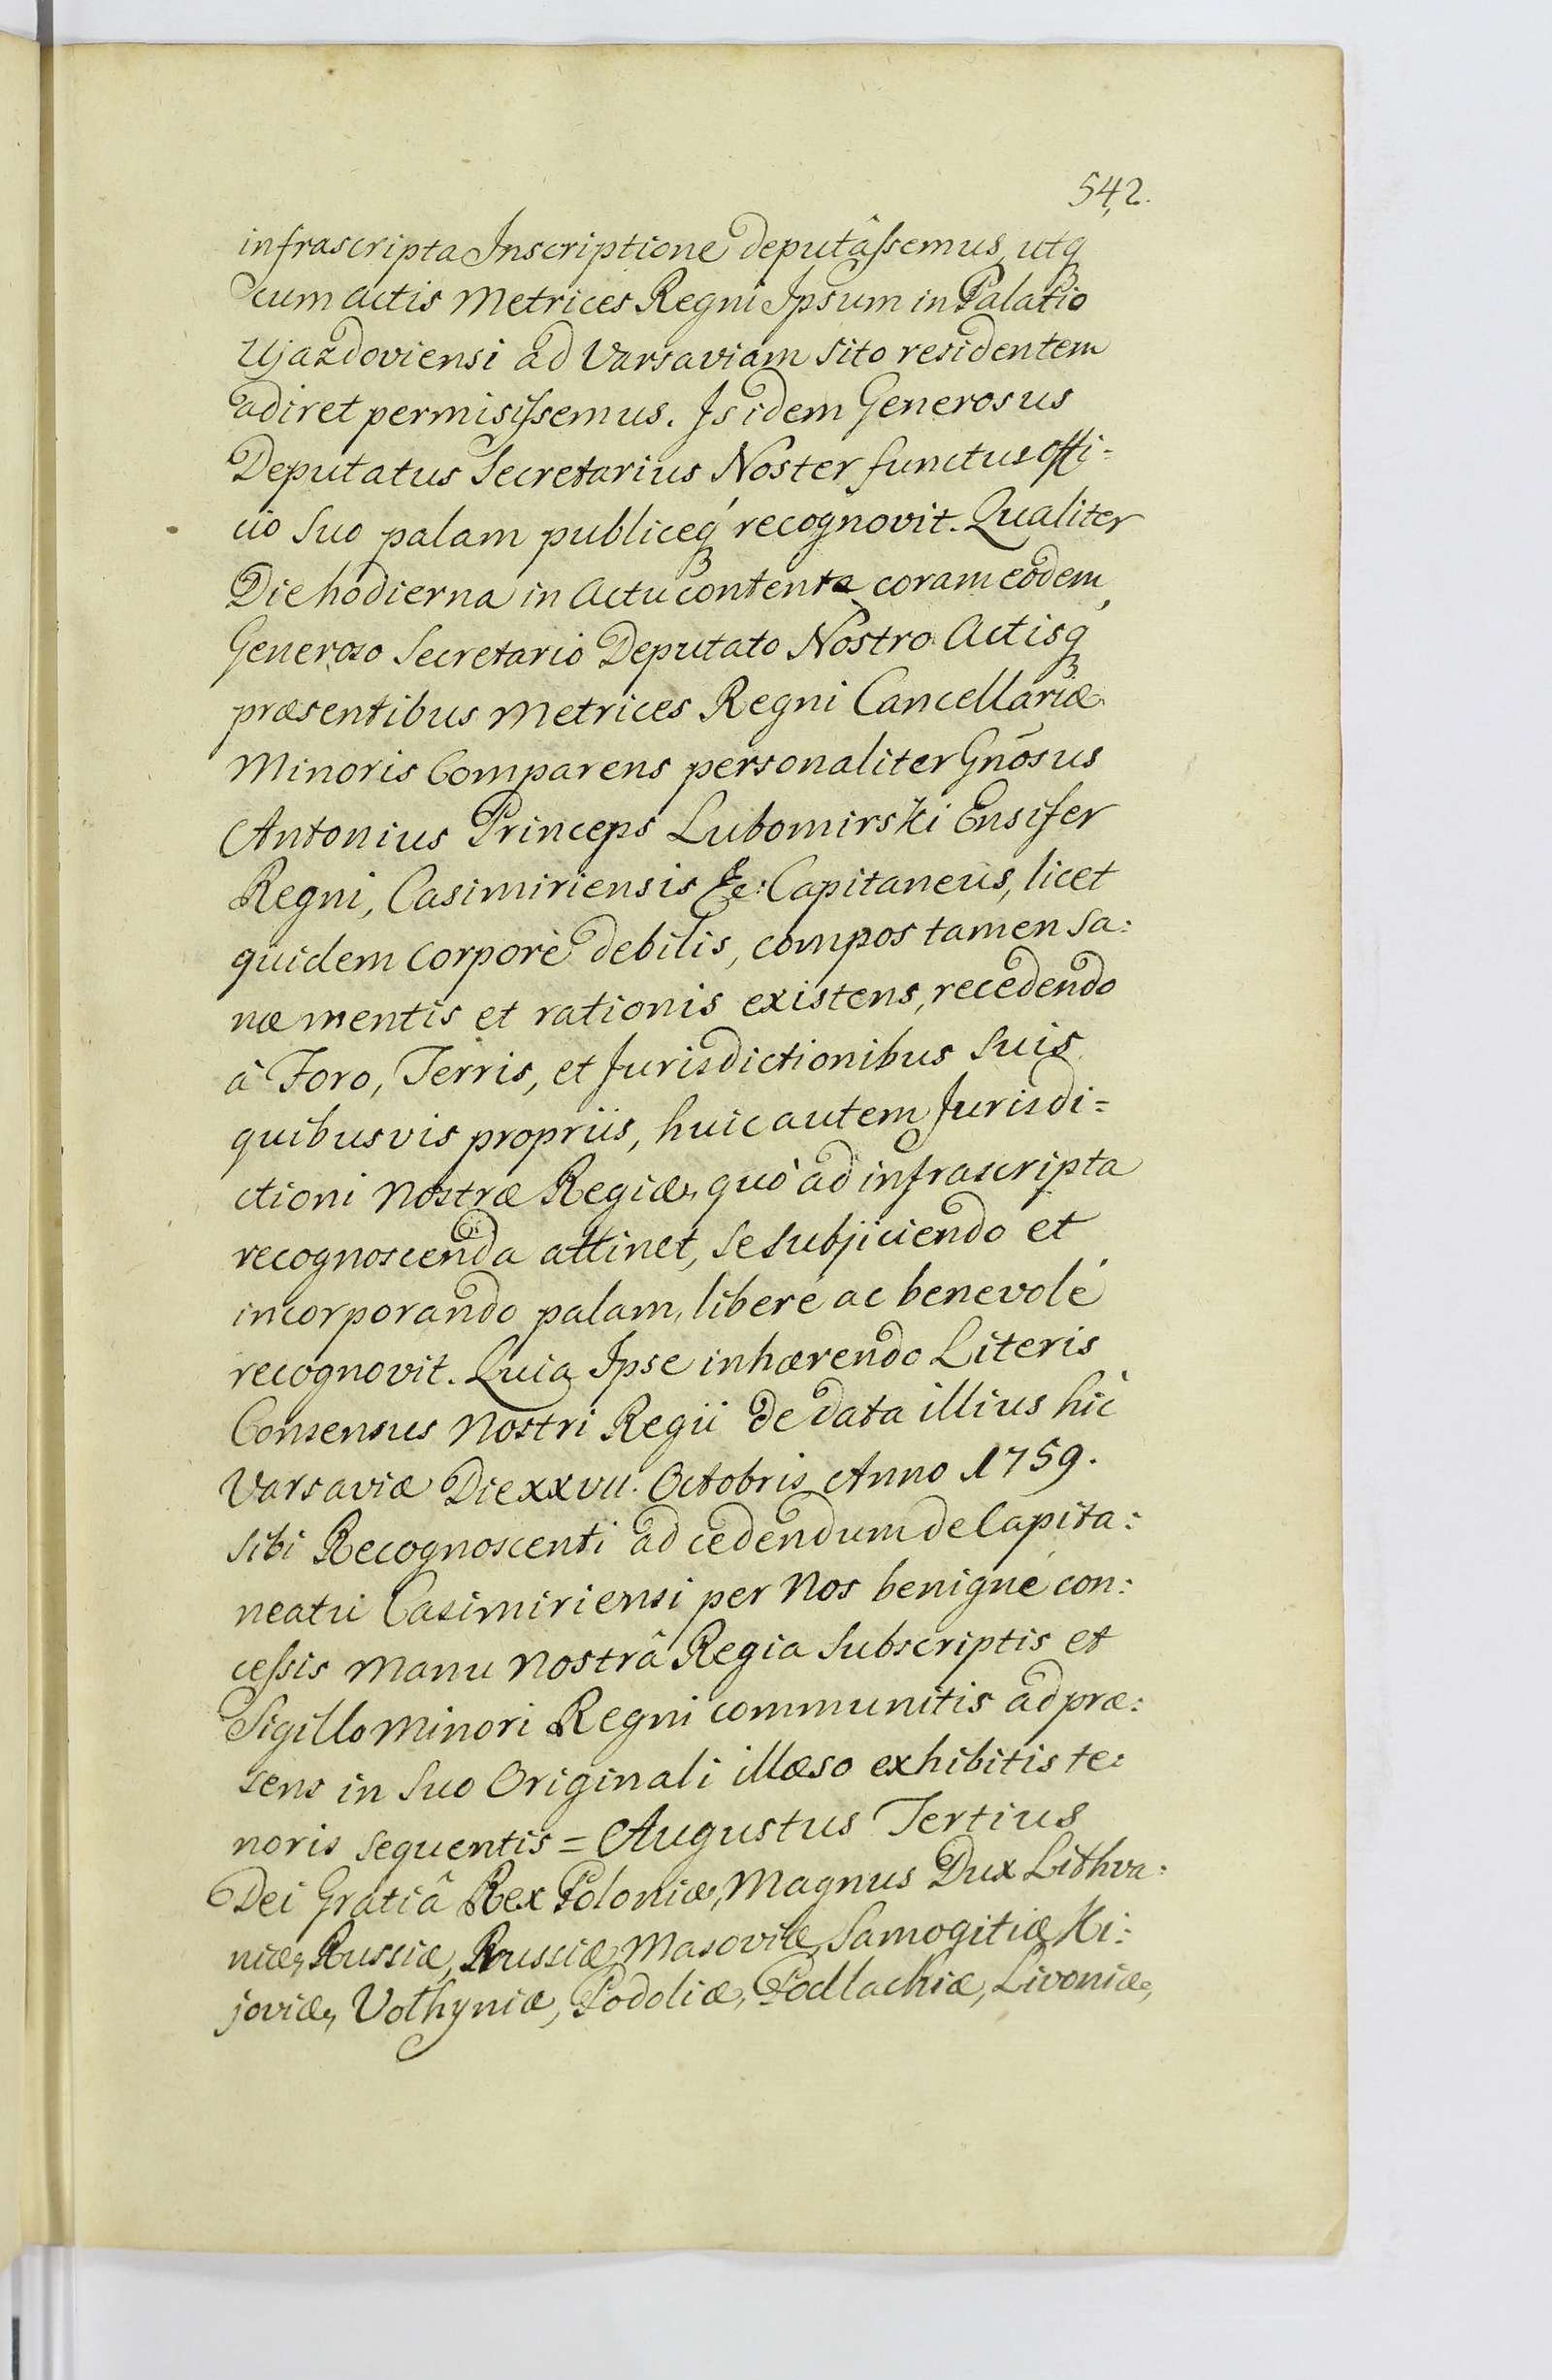 542.
infrascripta Inscriptione deputâssemus, utq
cum Actis Metrices Regni Ipsum in Palatio
Ujazdoviensi ad Varsaviam sito residentem
adiret permisissemus. Is idem Generosus
Deputatus Secretarius Noster functus offi=
cio suo palam publiceq́ recognovit. Qualiter
Die hodierna in Actu contenta coram eodem
Generoso Secretario Deputato Nostro Actisq́
præsentibus Metrices Regni Cancellariæ
Minoris Comparens personaliter Gnõsus
Antonius Princeps Lubomirski Ensifer
Regni, Casimiriensis &c: Capitaneus, licet
quidem corporè debilis, compos tamen sa:
næ mentis et rationis existens, recedendo
à Foro, Terris, et Jurisdictionibus suis
quibusvis propriis, huic autem Jurisdi=
ctioni Nostræ Regiæ, quò ad infrascripta
recognoscenda attinet, se subjiciendo et
incorporando palam, liberé ac benevolé
recognovit. Quia Ipse inhærendo Literis
Consensus Nostri Regii de data illius hic
Varsaviæ Die XXVII. Octobris Anno 1759.
sibi Recognoscenti ad cedendum de Capita:
neatu Casimiriensi per Nos benigné con:
cessis Manu Nostrâ Regia subscriptis et
Sigillo Minori Regni communitis ad præ:
sens in suo Originali illæso exhibitis te:
noris sequentis = Augustus Tertius
Dei Gratiâ Rex Poloniæ, Magnus Dux Lithva:
niæ, Russiæ, Prussiæ, Masoviæ, Samogitiæ, Ki:
joviæ, Volhyniæ, Podoliæ, Podlachiæ, Livoniæ,